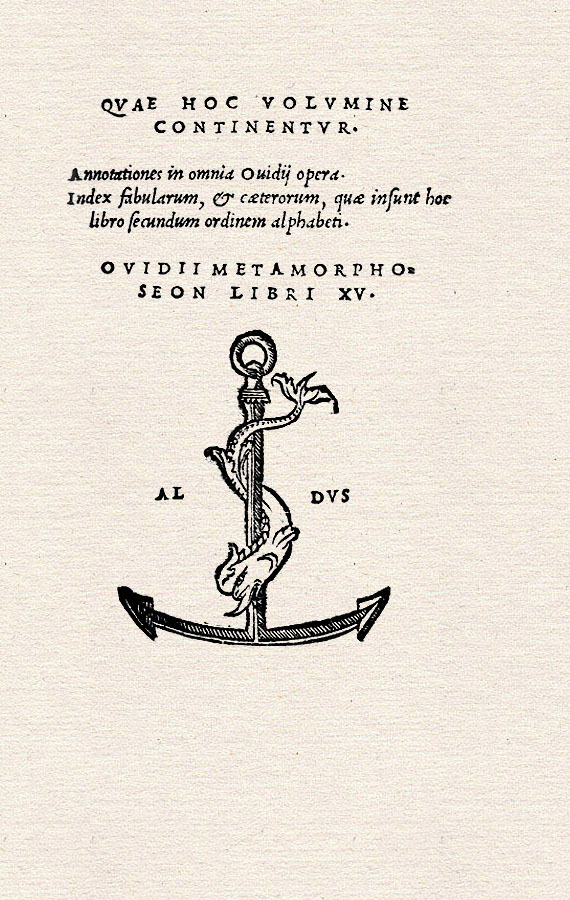 QVAE HOC VOLVMINE
CONTINENTVR.
Annotationes in omnia Ouidij opera.
Index fabularum, & cæterorum, quæ insunt hoc
libro secundum ordinem alphabeti.
OVIDII METAMORPHO=
SEON LIBRI XV.
AL DVS